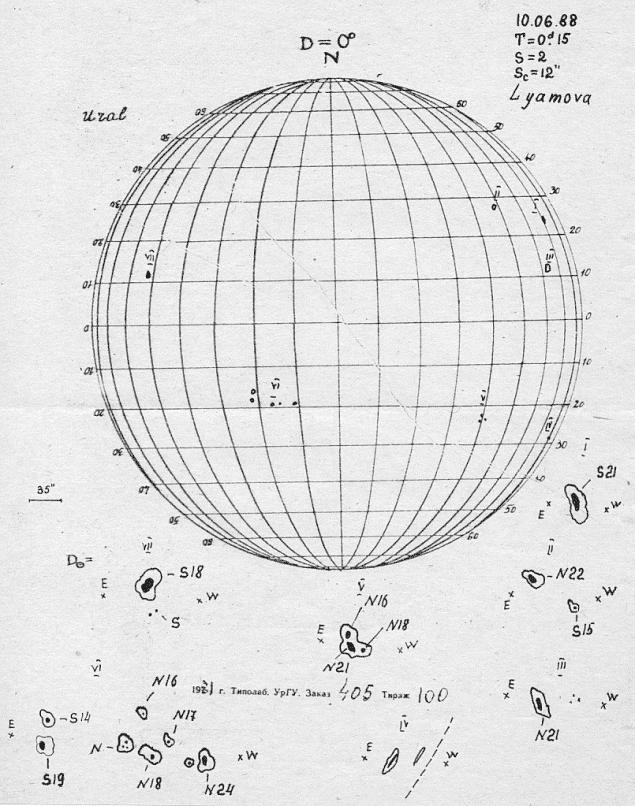 10.06.88
T=0ᵈ.15
S=2
Sc=12"
Lyamova
D=0°
N
Ural
60
50
40
30
20
10
0
10
20
30
40
50
60
60
50
40
30
20
10
0
10
20
30
40
50
60
II
I
III
VII
VI
V
IV
35"
D₀=
I
S21
E
W
II
N22
E
W
S15
VII
E
S18
W
S
V
N16
N18
E
W
N21
III
E
W
N21
VI
N16
E
S14
N17
N
S19
N18
N24
W
г. Типолаб. УрГУ. Заказ 405 Тираж 100
IV
E
W